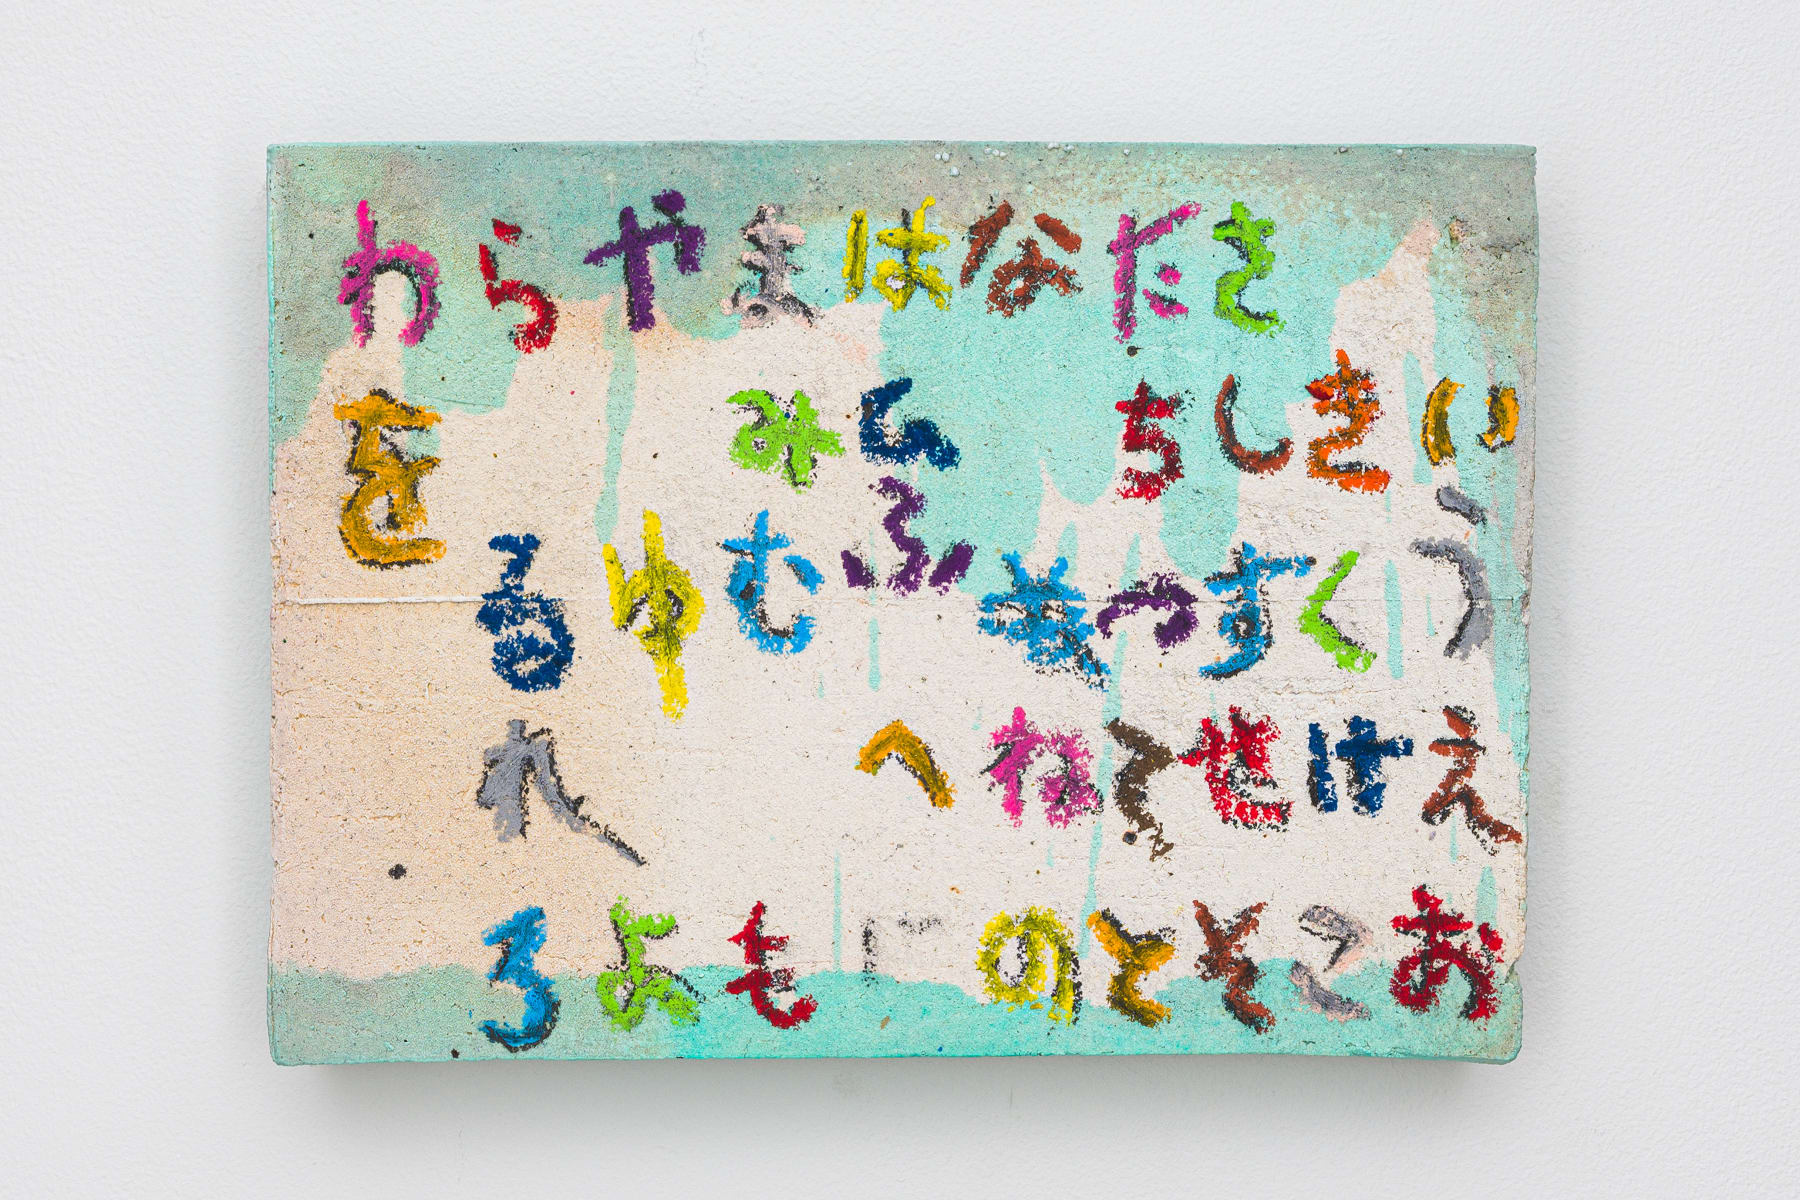 いうえお
きくけこ
さしすせそ
たちつてと
なぬねの
はひふへ
まみむも
やゆよ
らるれろ
わを